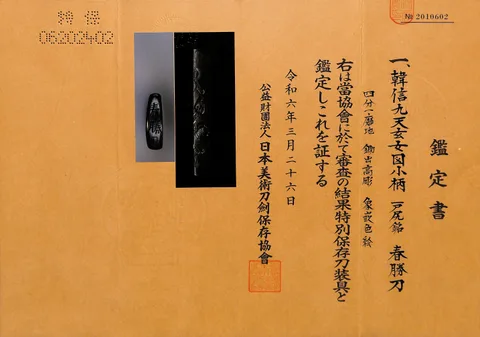 № 2010602
特保
06202402
鑑定書
一、韓信九天玄女図小柄 戸尻銘 春勝刀
四分一磨地 鋤出高彫 象嵌色絵
右は當協會に於て審査の結果特別保存刀装具と
鑑定しこれを証する
令和六年三月二十六日
公益財團法人 日本美術刀劍保存協會